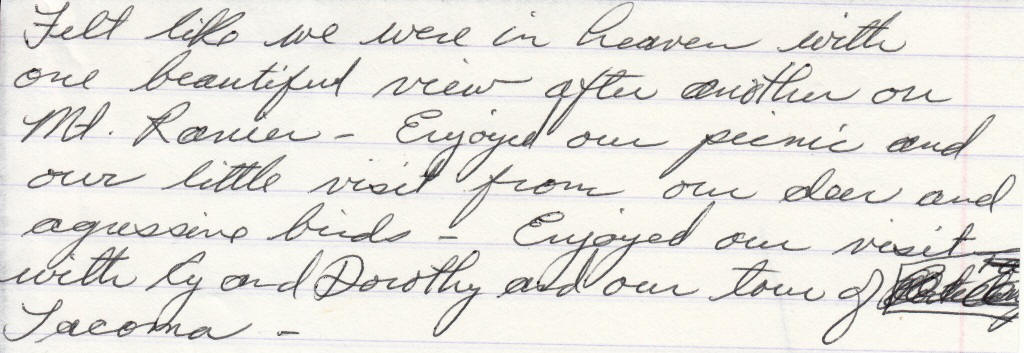 Felt like we were in heaven with
one beautiful view after another on
Mt. Ranier - Enjoyed our picnic and
our little visit from our deer and
agressive birds - Enjoyed our visit
with Cy and Dorothy and our tour of
Tacoma -